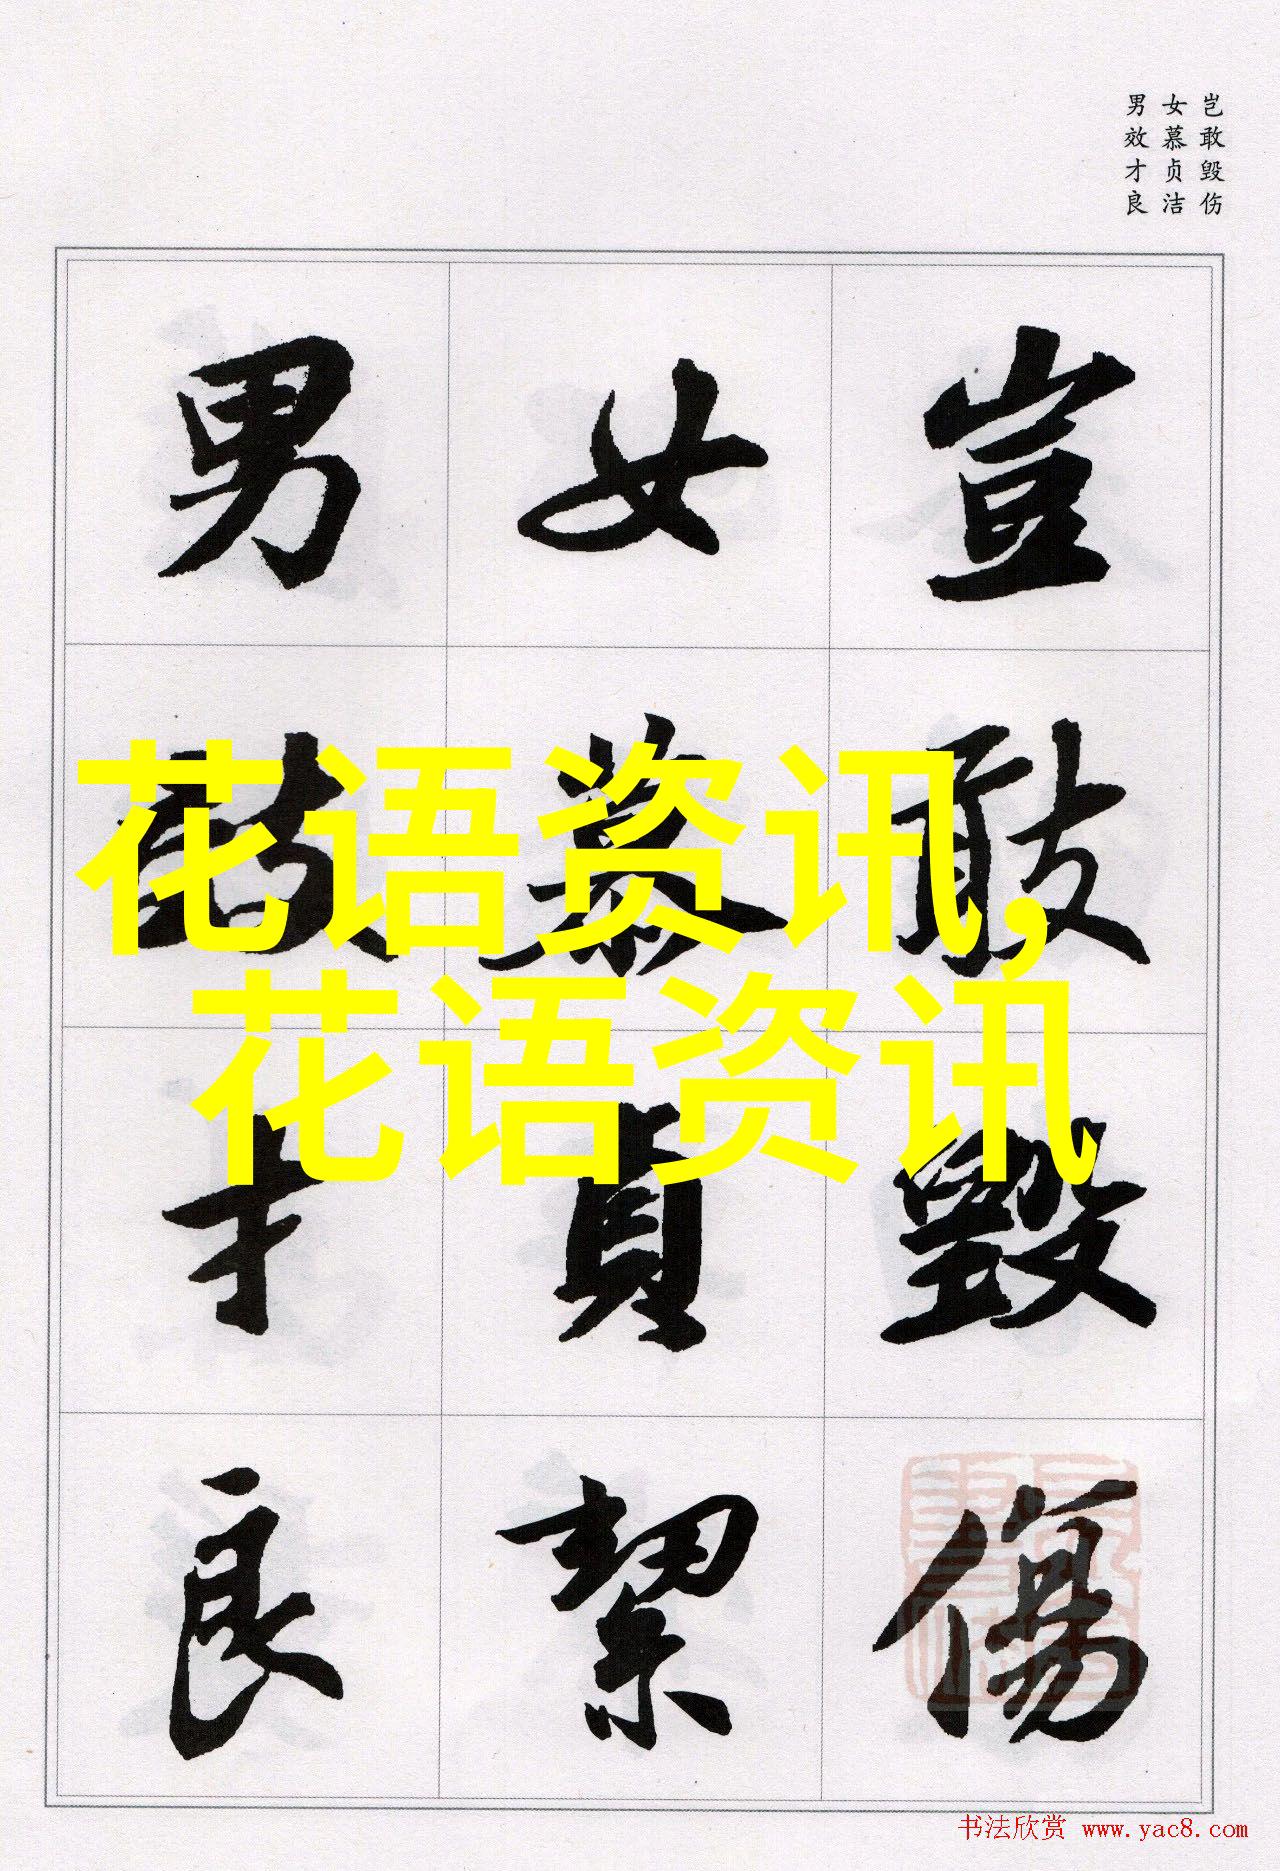 岂敢毁伤
女慕贞洁
男效才良
豈敢毀傷
女慕貞絜
男效才良
花语资讯,
花语资讯
书法欣赏 www.yac8.com